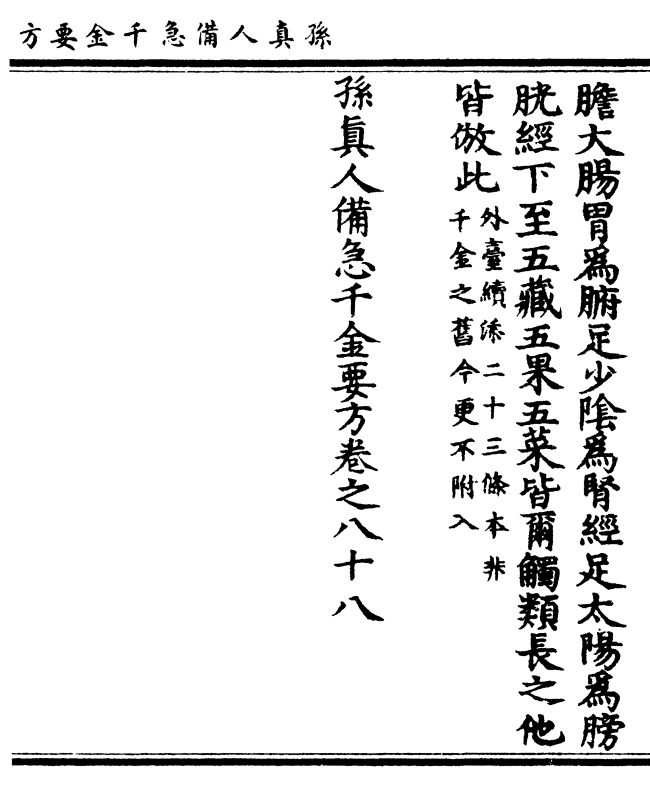 孫真人備急千金要方
膽大腸胃爲腑足少陰爲腎經足太陽爲膀
胱經下至五藏五果五菜皆爾觸類長之他
皆倣此外臺續添二十三條本非
千金之舊今更不附入
孫眞人備急千金要方卷之八十八